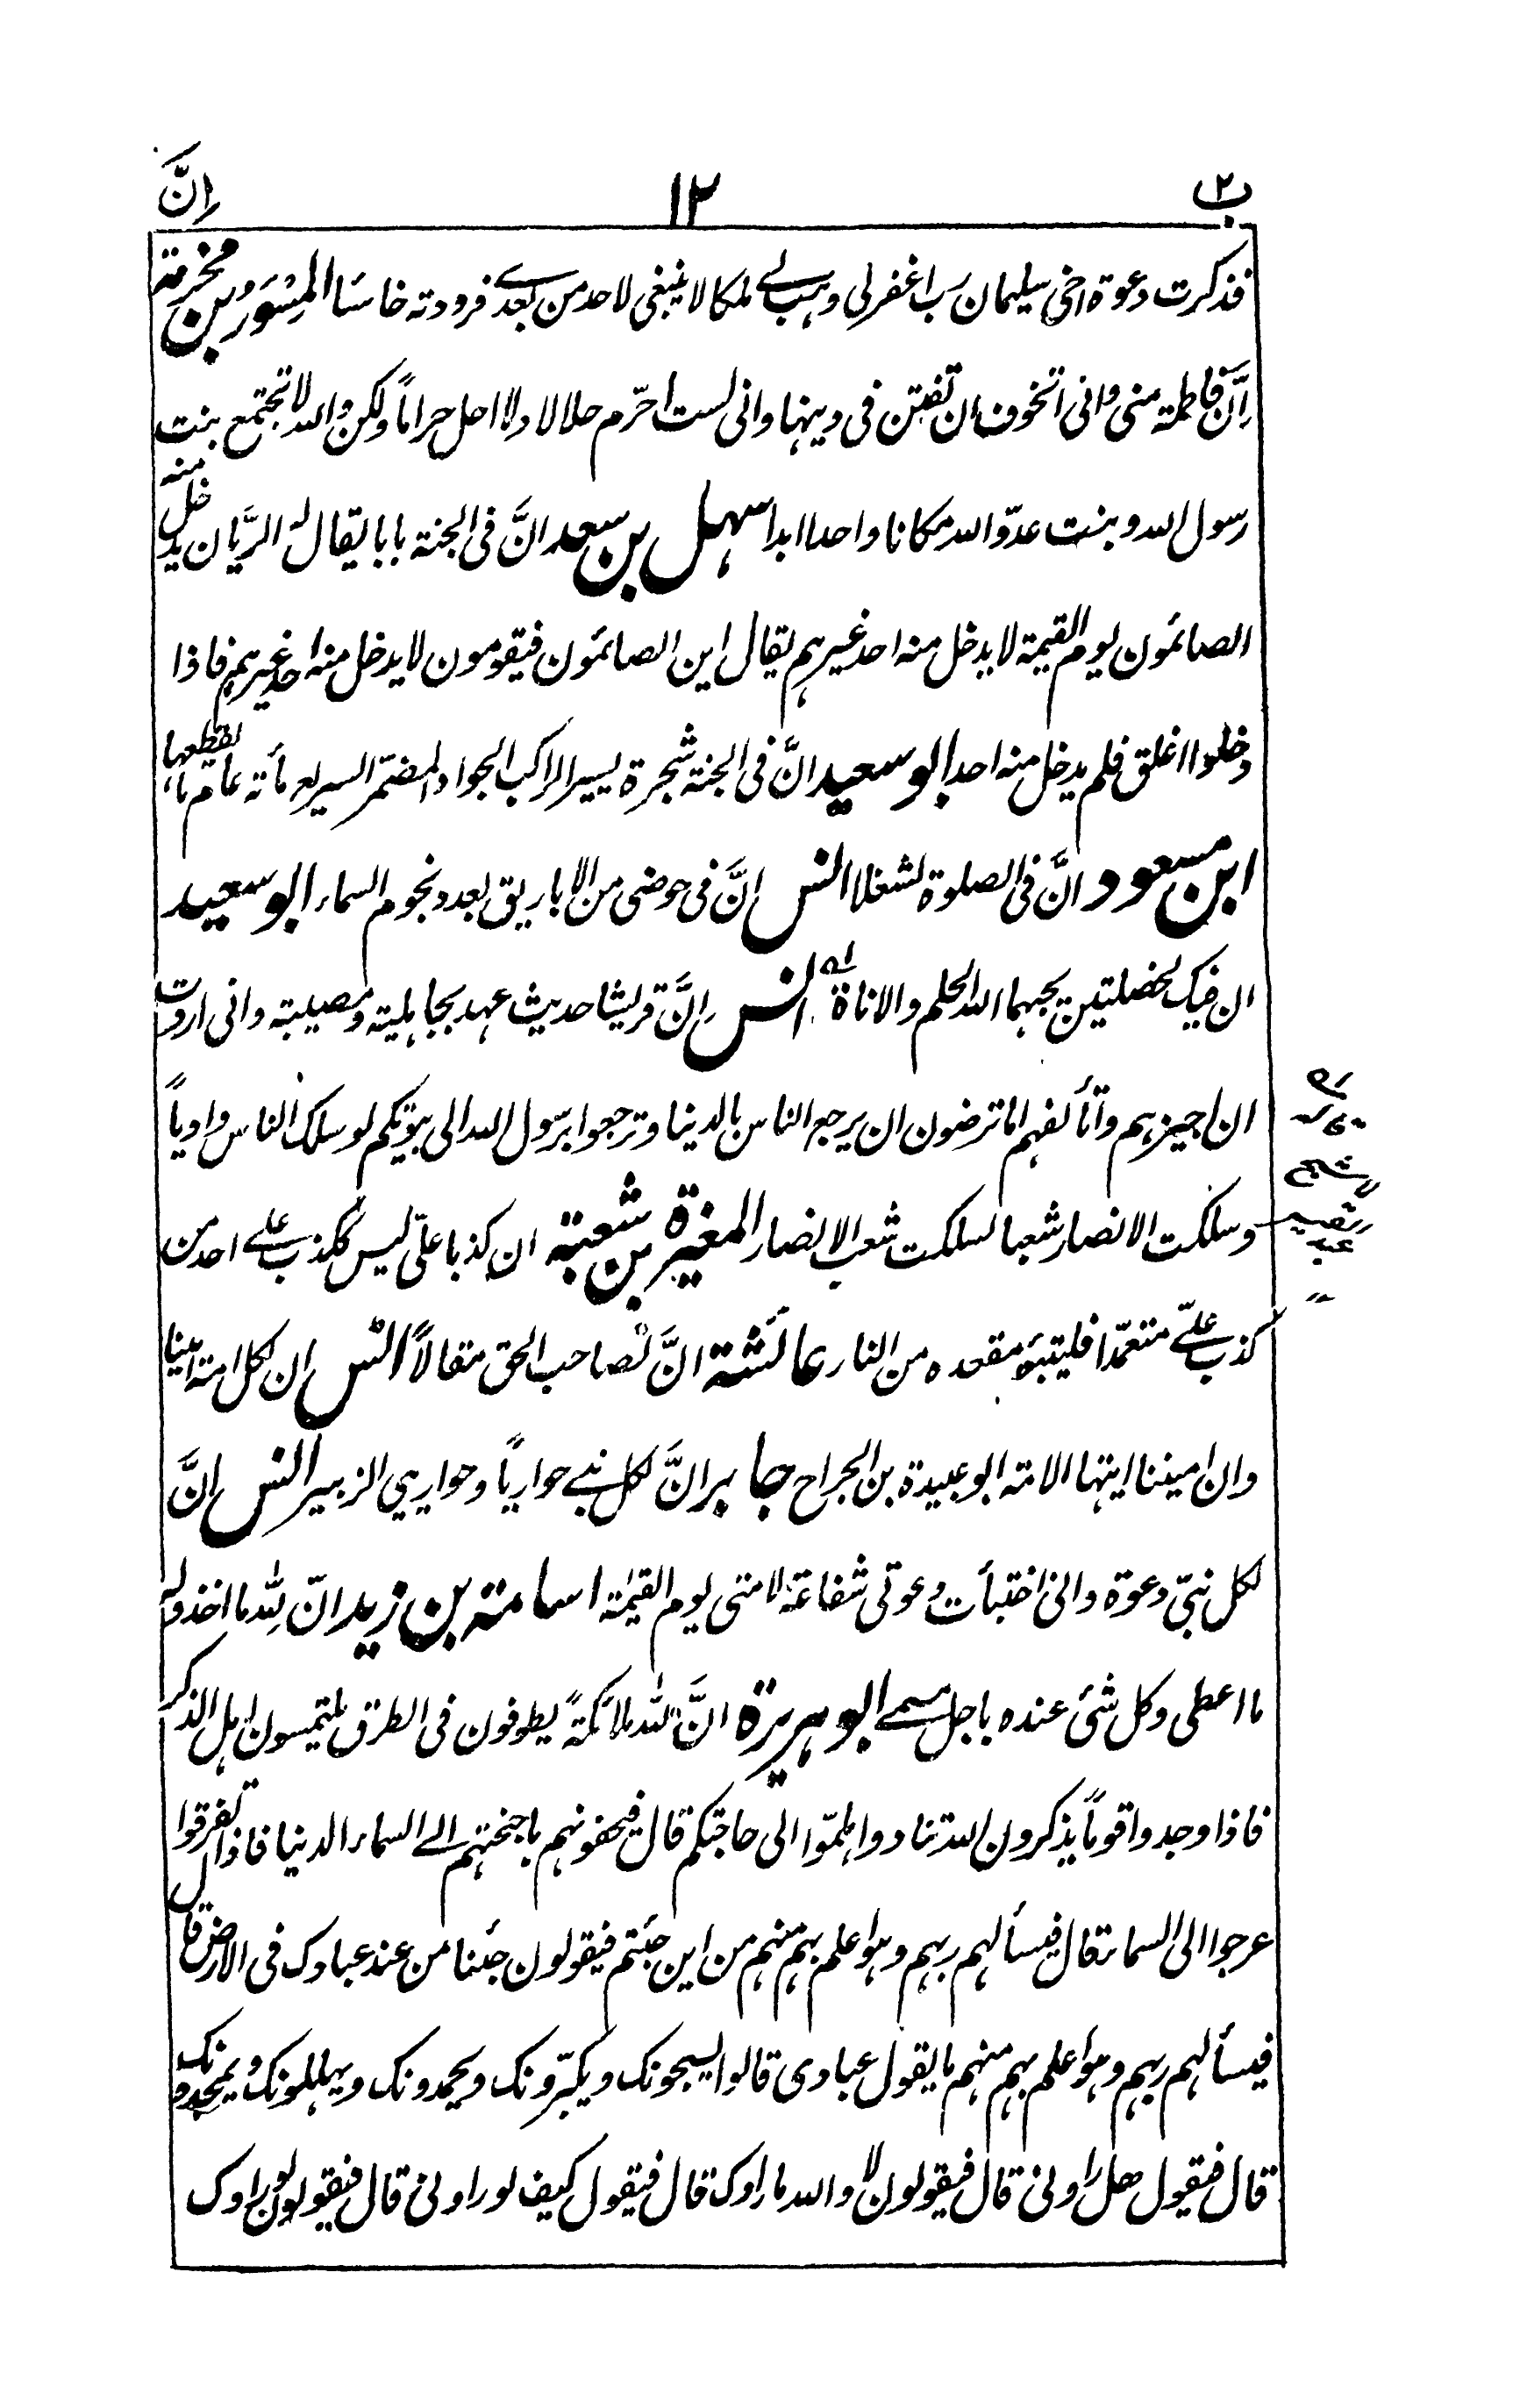 ب٢ ١٢ اِنَّ
فذكرت دعوة اخى سليمان رب اغفرلى وهب لے ملكا لا ينبغى لاحد من بعدے فرودته خاسئا المِسْوَرُ بن مخرمة
اِنَّ فاطمة منى وانى اتخوف ان تفتن فى دينها وانى لست احرّم حلالا ولا احل حراماً ولكن والله لا تجتمع بنت
رسول الله وبنت عدوّ الله مكانا واحدا ابدا سهل بن سعد انَّ فى الجنة بابا يقال له الريَّان يدخل منه
الصائمون يوم القيمة لا يدخل منه احد غيرهم يقال اين الصائمون فيقومون لا يدخل منه احد غيرهم فاذا
دخلوا اغلق فلم يدخل منه احد ابو سعيد انَّ فى الجنة شجرة يسير الراكب الجواد المضمّر السريع مأته عام ما يقطعها
ابن مسعود انَّ فى الصلوة لشغلا انس اِنَّ فى حوضى من الاباريق بعدد نجوم السماء ابو سعيد
ان فيك لخصلتين يحبهما الله الحلم والاناة انس اِنَّ قريشا حديث عهد بجاهلية ومصيبة وانى اردت
ان اجيزهم وأتألفهم اما ترضون ان يرجع الناس بالدينا وترجعوا برسول الله الى بيوتكم لو سلك الناس وادياً
وسلكت الانصار شعبا لسلكت شعب الانصار المغيرة بن شعبة ان كذبا علىّ ليس ككذب علے احد من
كذب علےّ متعمّدا فليتبوّء مقعده من النار عائشة انَّ لصاحب الحق مقالاً انس ان لكل امة امينا
وان اميننا ايتها الامة ابو عبيدة بن الجراح جابر انَّ لكل نبے حوارياً وحواريى الزبير انس انَّ
لكل نبىّ دعوة وانى اختبأت دعوتى شفاعة لامتى يوم القيٰمة اسامة بن زيد انّ لِلّٰه ما اخذ وله
ما اعطى وكل شئ عنده باجل مسمے ابو هريرة انَّ لله ملائكةً يطوفون فى الطرق يلتمسون اهل الذكر
فاذا وجدوا قوماً يذكرون الله تنادوا هلمّوا الى حاجتكم قال فيحفونهم باجنحتهم الے السماء الدنيا فاذا تفرقوا
عرجوا الى السماء قال فيسألهم ربهم وهو اعلم بهم منهم من اين جئتم فيقولون جئنا من عند عبادك فى الارض قال
فيسألهم ربهم وهو اعلم بهم منهم ما يقول عبادى قالوا يسبحونك ويكبّرونك ويحمدونك ويهللونك ويمجدونك
قال فيقول هل راونى قال فيقولون لا والله ما راوك قال فيقول كيف لو راونى قال فيقولون لو راوك